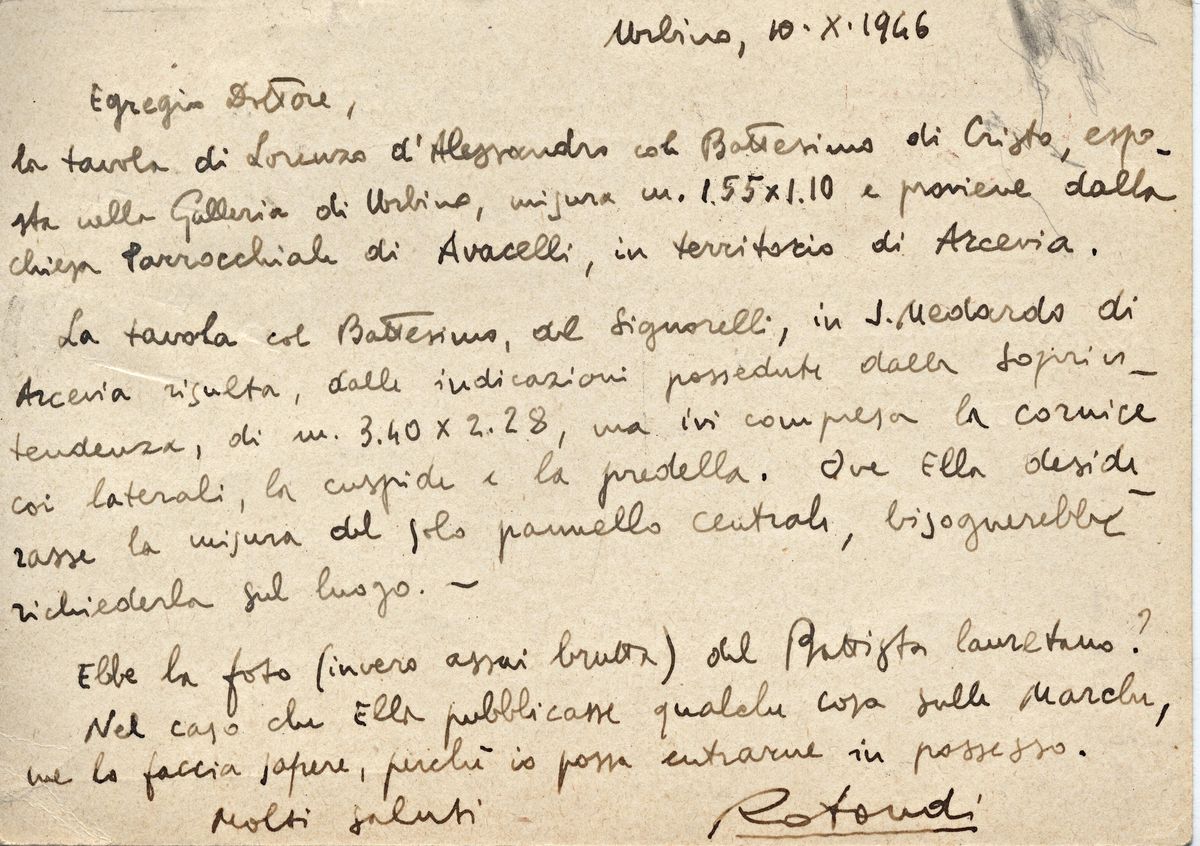 Urbino, 10.X.1946
Egregio Dottore,
la tavola di Lorenzo d'Alessandro col Battesimo di Cristo, espo-
sta nella Galleria di Urbino, misura m. 1.55x1.10 e proviene dalla
chiesa Parrocchiale di Avacelli, in territorio di Arcevia.
La tavola col Battesimo, del Signorelli, in S. Medardo di
Arcevia risulta, dalle indicazioni possedute dalla Soprin-
tendenza, di m. 3.40 x 2.28, ma ivi compresa la cornice
coi laterali, la cuspide e la predella. Ove Ella deside-
rasse la misura del solo pannello centrale, bisognerebbe
richiederla sul luogo. —
Ebbe la foto (invero assai brutta) del Battista lauretano?
Nel caso che Ella pubblicasse qualche cosa sulle Marche,
me lo faccia sapere, perchè io possa entrarne in possesso.
Molti saluti
Rotondi